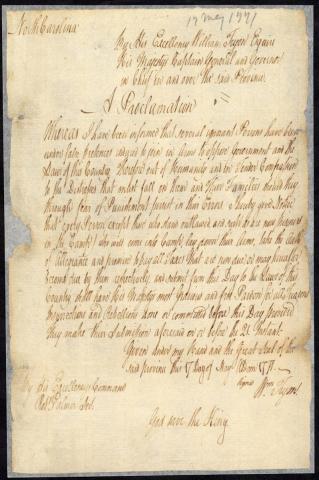 17 May 1771
North Carolina
By His Excellency William Tryon Esquire
His Majesty's Captain General and Governor
in Chief in and over the said Province
A Proclamation
Whereas I have been informed that several ignorant Persons have been
under false pretences induced to join in Arms to oppose Government and the
Laws of this Country Therefore out of Humanity and in Tender Compassion
to the Distresses that must fall on Them and Their Families should they
through fear of Punishment persist in their Errors I hereby give Notice
that every Person except those who are outlawed and such as are now prisoners
in the Camp who will come into Camp lay down their Arms, take the Oath
of Allegiance and promise to pay all Taxes that are now due or may hereafter
become due by them respectively and submit from this Day to the Laws of this
Country shall have His Majesty's most Gracious and free Pardon for all Treasons
Insurrections and Rebellions done or committed before this Day provided
they make their Submission aforesaid on or before the 21 Instant.
Given under my Hand and the Great Seal of the
said province this 17 Day of May Anno Dom 1771
signed
Wm Tryon
By His Excellency's Command
Robt Palmer Sec.
God save the King